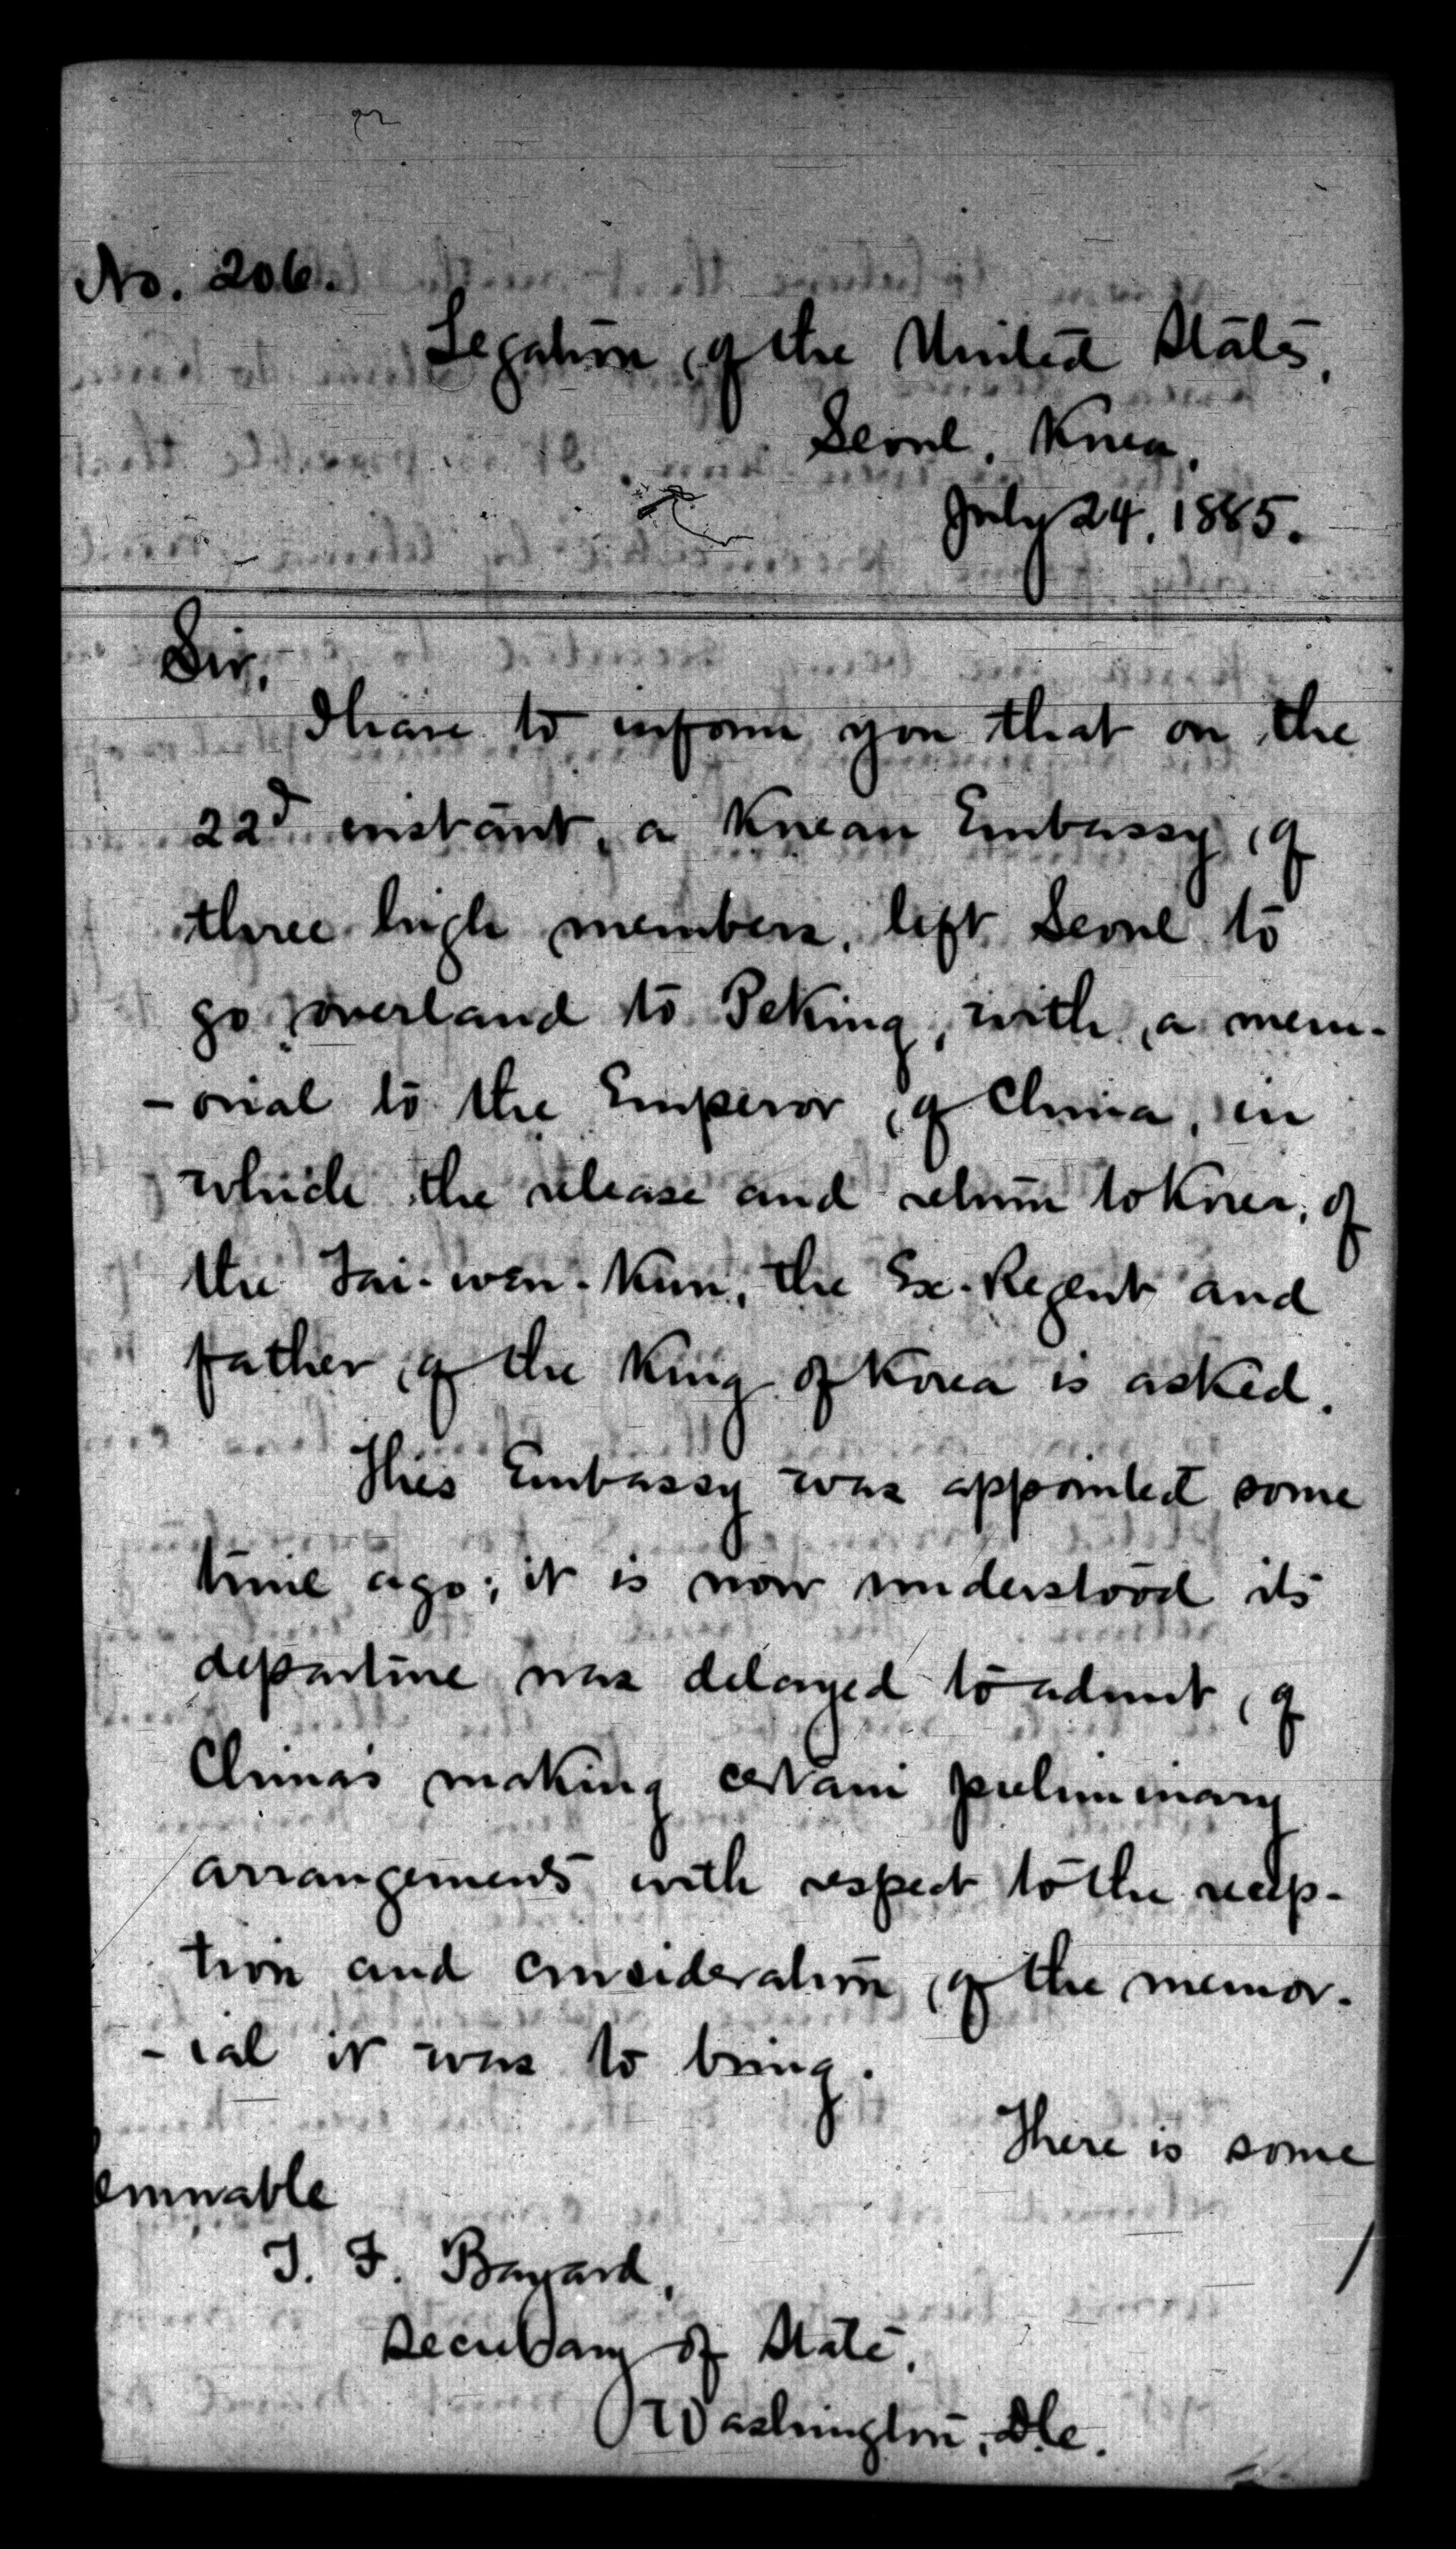 No. 206.
Legation of the United States,
Seoul, Korea,
July 24, 1885.
Sir,
I have to inform you that on the
22d instant, a Korean Embassy of
three high members, left Seoul to
go overland to Peking, with a mem-
-orial to the Emperor of China, in
which the release and return to Korea, of
the Tai-wen-Kun, the Ex-Regent and
father of the King of Korea is asked.
This Embassy was appointed some
time ago; it is now understood its
departure was delayed to admit of
China's making certain preliminary
arrangements with respect to the recep-
tion and consideration of the memor-
-ial it was to bring.
There is some
T. F. Bayard,
Secretary of State,
Washington, D.C.